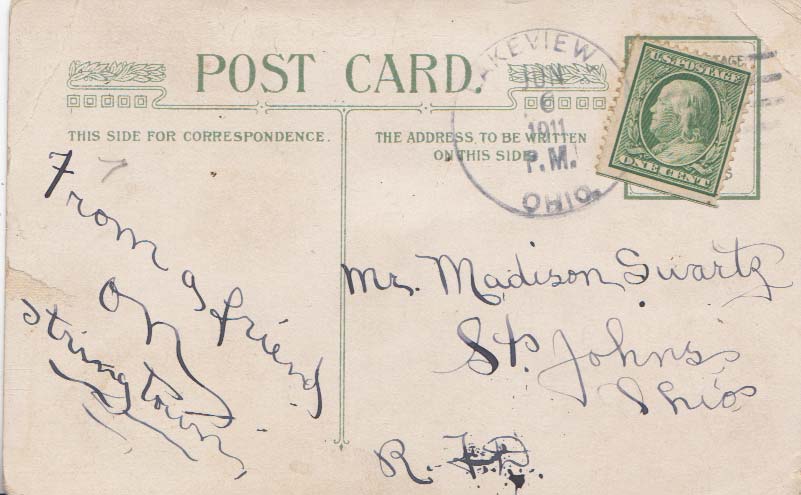 POST CARD.
THIS SIDE FOR CORRESPONDENCE.
THE ADDRESS TO BE WRITTEN
ON THIS SIDE
LAKEVIEW
JUN
6
1911
P.M.
OHIO.
U.S. POSTAGE
ONE CENT
From a friend
on
Stringtown
Mr. Madison Swartz
St. Johns
Ohio
R. F.D.